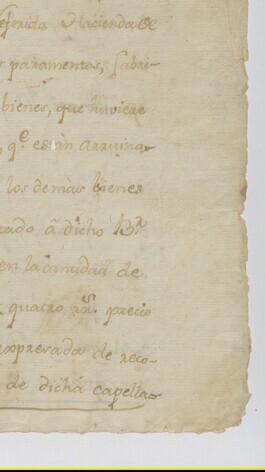 referida Hacienda de
paramentos, fabri-
bienes, que huviere
q.e están arruina-
los demàs bienes
ado à dicho B.r
en la cantidad de
quatro rr.s precio
expresada de reco-
de dicha capella-